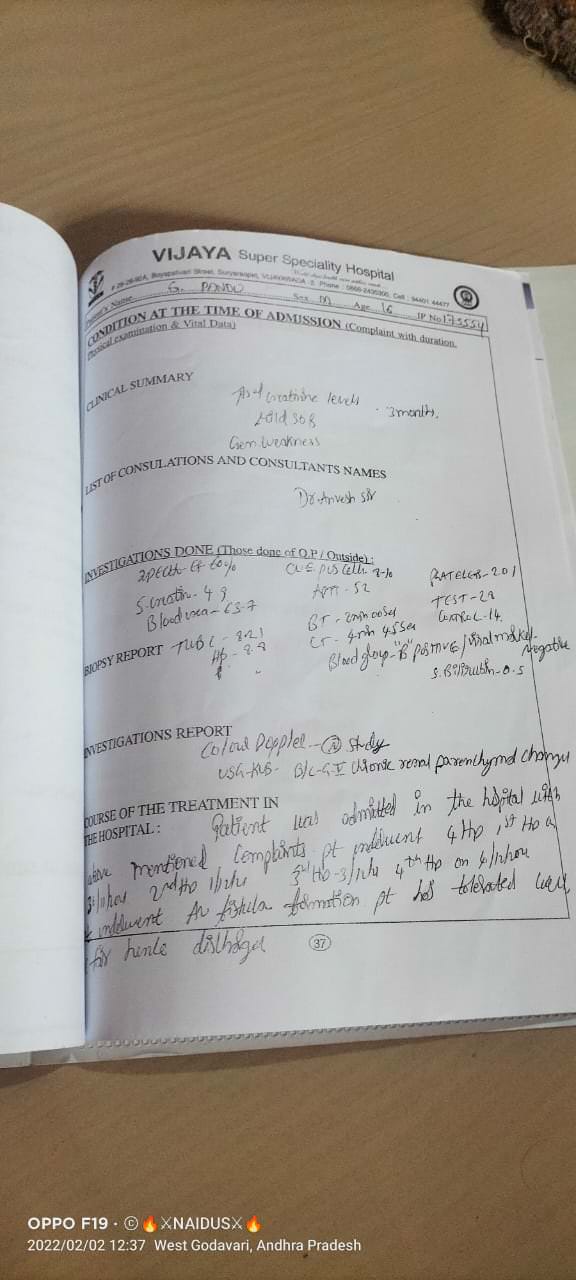 VIJAYA Super Speciality Hospital
# 29-26-92A, Boyapativari Street, Suryaraopet, VIJAYAWADA - 2. Phone : 0866-2435300, Cell : 94401 44477
Patient's Name G. PANDU Sex M Age 16 IP No 175554
CONDITION AT THE TIME OF ADMISSION (Complaint with duration,
Physical examination & Vital Data)
CLINICAL SUMMARY
creatinine levels
SOB 3 months,
Gen. Weakness
LIST OF CONSULATIONS AND CONSULTANTS NAMES
Dr. Anvesh Sir
INVESTIGATIONS DONE (Those done of O.P / Outside) :
2D Echo - EF 60% C.U.E. PUS Cells 8-10 PLATELES - 2.01
S. creatin - 4.9 APTT - 52 TEST - 28
Blood urea - 63.7 BT - 2min 00Sec CONTROL - 14.
BIOPSY REPORT TWBC - 8.21 CT - 4min 45Sec
Hb - 8.8 Blood group - "B" POSITIVE / Viral marker - Negative
S. Bilirubin - 0.5
INVESTIGATIONS REPORT
Colour Doppler - (N) Study
USG-KUB - B/L - G-II Chronic renal parenchymal changes
COURSE OF THE TREATMENT IN
THE HOSPITAL : Patient was admitted in the hospital with
above mentioned complaints pt underwent 4 HD, 1st HD on
2nd HD 3rd HD - 4th HD on
underwent AV fistula formation pt has tolerated well
hence discharged
37
OPPO F19 · © 🔥XNAIDUSX🔥
2022/02/02 12:37 West Godavari, Andhra Pradesh